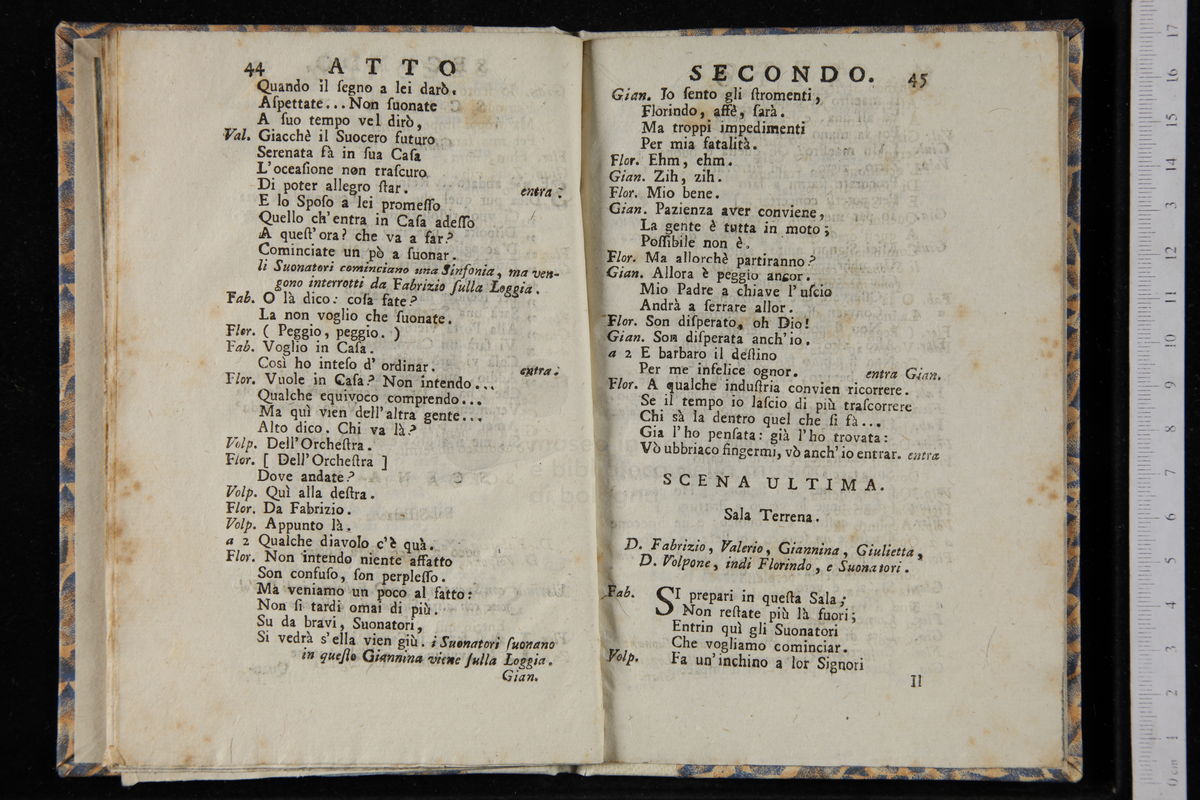 44 ATTO
Quando il ſegno a lei darò.
Aſpettate... Non ſuonate
A ſuo tempo vel dirò,
Val. Giacchè il Suocero futuro
Serenata fà in ſua Caſa
L'oceaſione non traſcuro
Di poter allegro ſtar. entra.
E lo Spoſo a lei promeſſo
Quello ch'entra in Caſa adeſſo
A queſt'ora? che va a far?
Cominciate un pò a ſuonar.
li Suonatori cominciano una Sinfonia, ma ven-
gono interrotti da Fabrizio ſulla Loggia.
Fab. O là dico: coſa fate?
La non voglio che ſuonate.
Flor. ( Peggio, peggio. )
Fab. Voglio in Caſa.
Così ho inteſo d' ordinar. entra.
Flor. Vuole in Caſa? Non intendo...
Qualche equivoco comprendo...
Ma quì vien dell'altra gente...
Alto dico. Chi va là?
Volp. Dell'Orcheſtra.
Flor. [ Dell'Orcheſtra ]
Dove andate?
Volp. Quì alla deſtra.
Flor. Da Fabrizio.
Volp. Appunto là.
a 2 Qualche diavolo c'è quà.
Flor. Non intendo niente affatto
Son confuſo, ſon perpleſſo.
Ma veniamo un poco al fatto:
Non ſi tardi omai di più.
Su da bravi, Suonatori,
Si vedrà s'ella vien giù. i Suonatori ſuonano
in queſto Giannina viene ſulla Loggia.
Gian.
SECONDO. 45
Gian. Io ſento gli ſtromenti,
Florindo, affè, ſarà.
Ma troppi impedimenti
Per mia fatalità.
Flor. Ehm, ehm.
Gian. Zih, zih.
Flor. Mio bene.
Gian. Pazienza aver conviene,
La gente è tutta in moto;
Poſſibile non è.
Flor. Ma allorchè partiranno?
Gian. Allora è peggio ancor.
Mio Padre a chiave l'uſcio
Andrà a ſerrare allor.
Flor. Son diſperato, oh Dio!
Gian. Son diſperata anch'io.
a 2 E barbaro il deſtino
Per me infelice ognor. entra Gian.
Flor. A qualche induſtria convien ricorrere.
Se il tempo io laſcio di più traſcorrere
Chi sà la dentro quel che ſi fà...
Gia l'ho penſata: già l'ho trovata:
Vò ubbriaco fingermi, vò anch'io entrar. entra
SCENA ULTIMA.
Sala Terrena.
D. Fabrizio, Valerio, Giannina, Giulietta,
D. Volpone, indi Florindo, e Suonatori.
Fab. SI prepari in queſta Sala;
Non reſtate più là fuori;
Entrin quì gli Suonatori
Che vogliamo cominciar.
Volp. Fa un'inchino a lor Signori
II